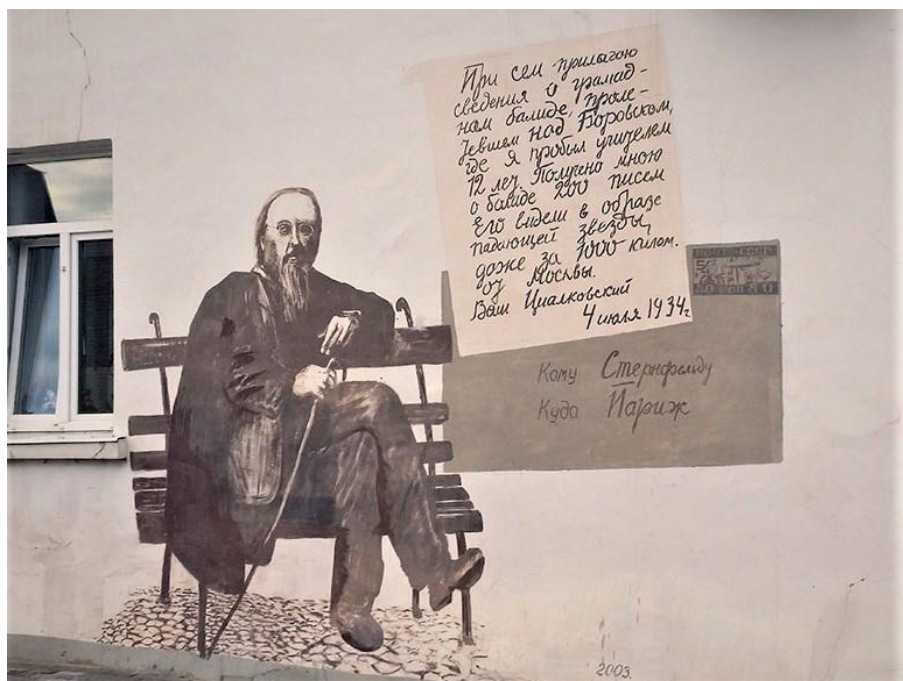 При сем прилагаю
сведения о грамад-
нам балиде, проле-
тевшем над Боровском,
где я пробыл учителем
12 лет. Получено мною
о балиде 200 писем
Его видели в образе
падающей звезды,
даже за 1000 килом.
от Москвы.
Ваш Циалковский
4 июля 1934г
ПОЧТА СССР
50 КОП 50
Кому Стернфельду
Куда Париж
2003.